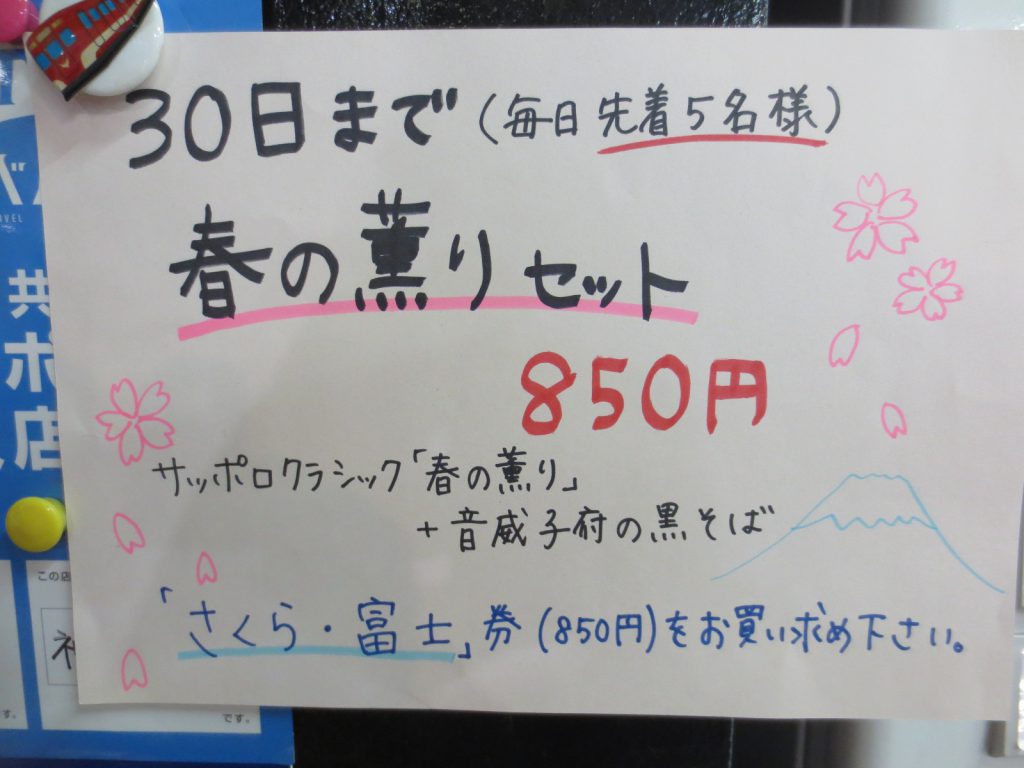 30日まで(毎日 先着5名様)
春の薫りセット
850円
サッポロクラシック「春の薫り」
+音威子府の黒そば
「さくら・富士」券(850円)をお買い求め下さい。
共
ポ
店
この店
です。